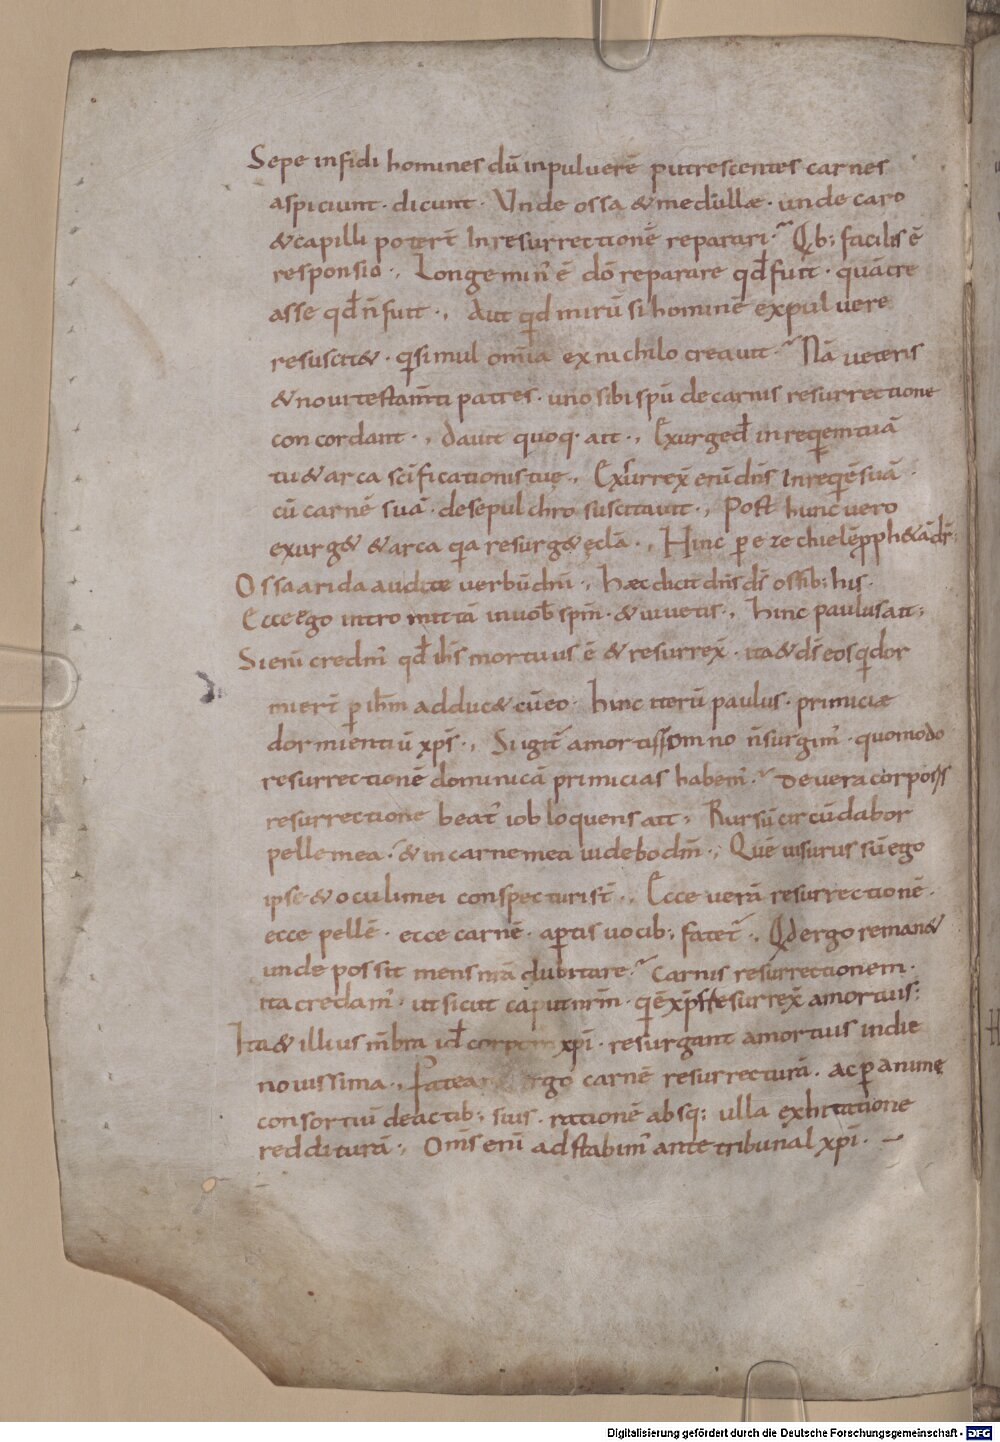 Sepe infidi homines dū inpuluerē putrescentes carnes
aspiciunt· dicunt· Vnde ossa & medullae· unde caro
& capilli poter̄t In resurrectionē reparari· Qb; facilis ē
responsio·, Longe min' ē dō reparare qđ fuit· quā cre
asse qđ n̄ fuit·, Aut qid mirū si hominē expuluere
resuscit&· qsimul omīa ex nichilo creauit· Nā ueteris
& noui testam̄ti patres· uno sibi spū de carnis resurrectione
concordant·, dauit quoq· ait·, Exurge dn̄e in requiem tuā
tu & arca sc̄ificationis tuę·, Exsurrex̄ enī dn̄s In requiē suā·
cū carnē suā· de sepulchro suscitauit·, Post hunc uero
exurg& & arca qia resurg& ęclā·, Hinc p ezechielē pph&ā dr̄;
Ossa arida audite uerbū dn̄i·, Haec dicit dn̄s ds̄ ossib; his·
Ecce ego intromittā in uob̄ spm̄· & uiuetis·, hinc paulus ait;
Si enī credim' qđ ih̄s mortuus ē & resurrex̄· ita & ds̄ eos qi dor
mier̄t p ih̄m adduc& cū eo· hinc iterū paulus· primiciae
dormientiū xp̄s·, Si igit̄ a mortis somno n̄ surgim'· quomodo
resurrectionē dominicā primicias habem'· De uera corporis
resurrectione beat' iob loquens ait; Rursū circūdabor
pelle mea· & in carne mea uidebo dm̄·, Quē uisurus sū ego
ipse & oculi mei conspecturi st̄·, Ecce uerā resurrectionē·
ecce pellē· ecce carnē· aptis uocib; fatet̄·, Qđ ergo reman&
unde possit mens nr̄a dubitare· Carnis resurrectionem·
ita credam'· ut sicut caput nr̄m· qēxp̄s resurrex̄ a mortuis;
Ita & illius m̄bra id corporis xp̄i· resurgant a mortuis in die
nouissima·, Fatear ergo carnē resurrecturā· ac p animę
consortiū de actib; suis· rationē absq; ulla exhitatione
reddituram·, Om̄s enī adstabim' ante tribunal xp̄i·
Digitalisierung gefördert durch die Deutsche Forschungsgemeinschaft - DFG